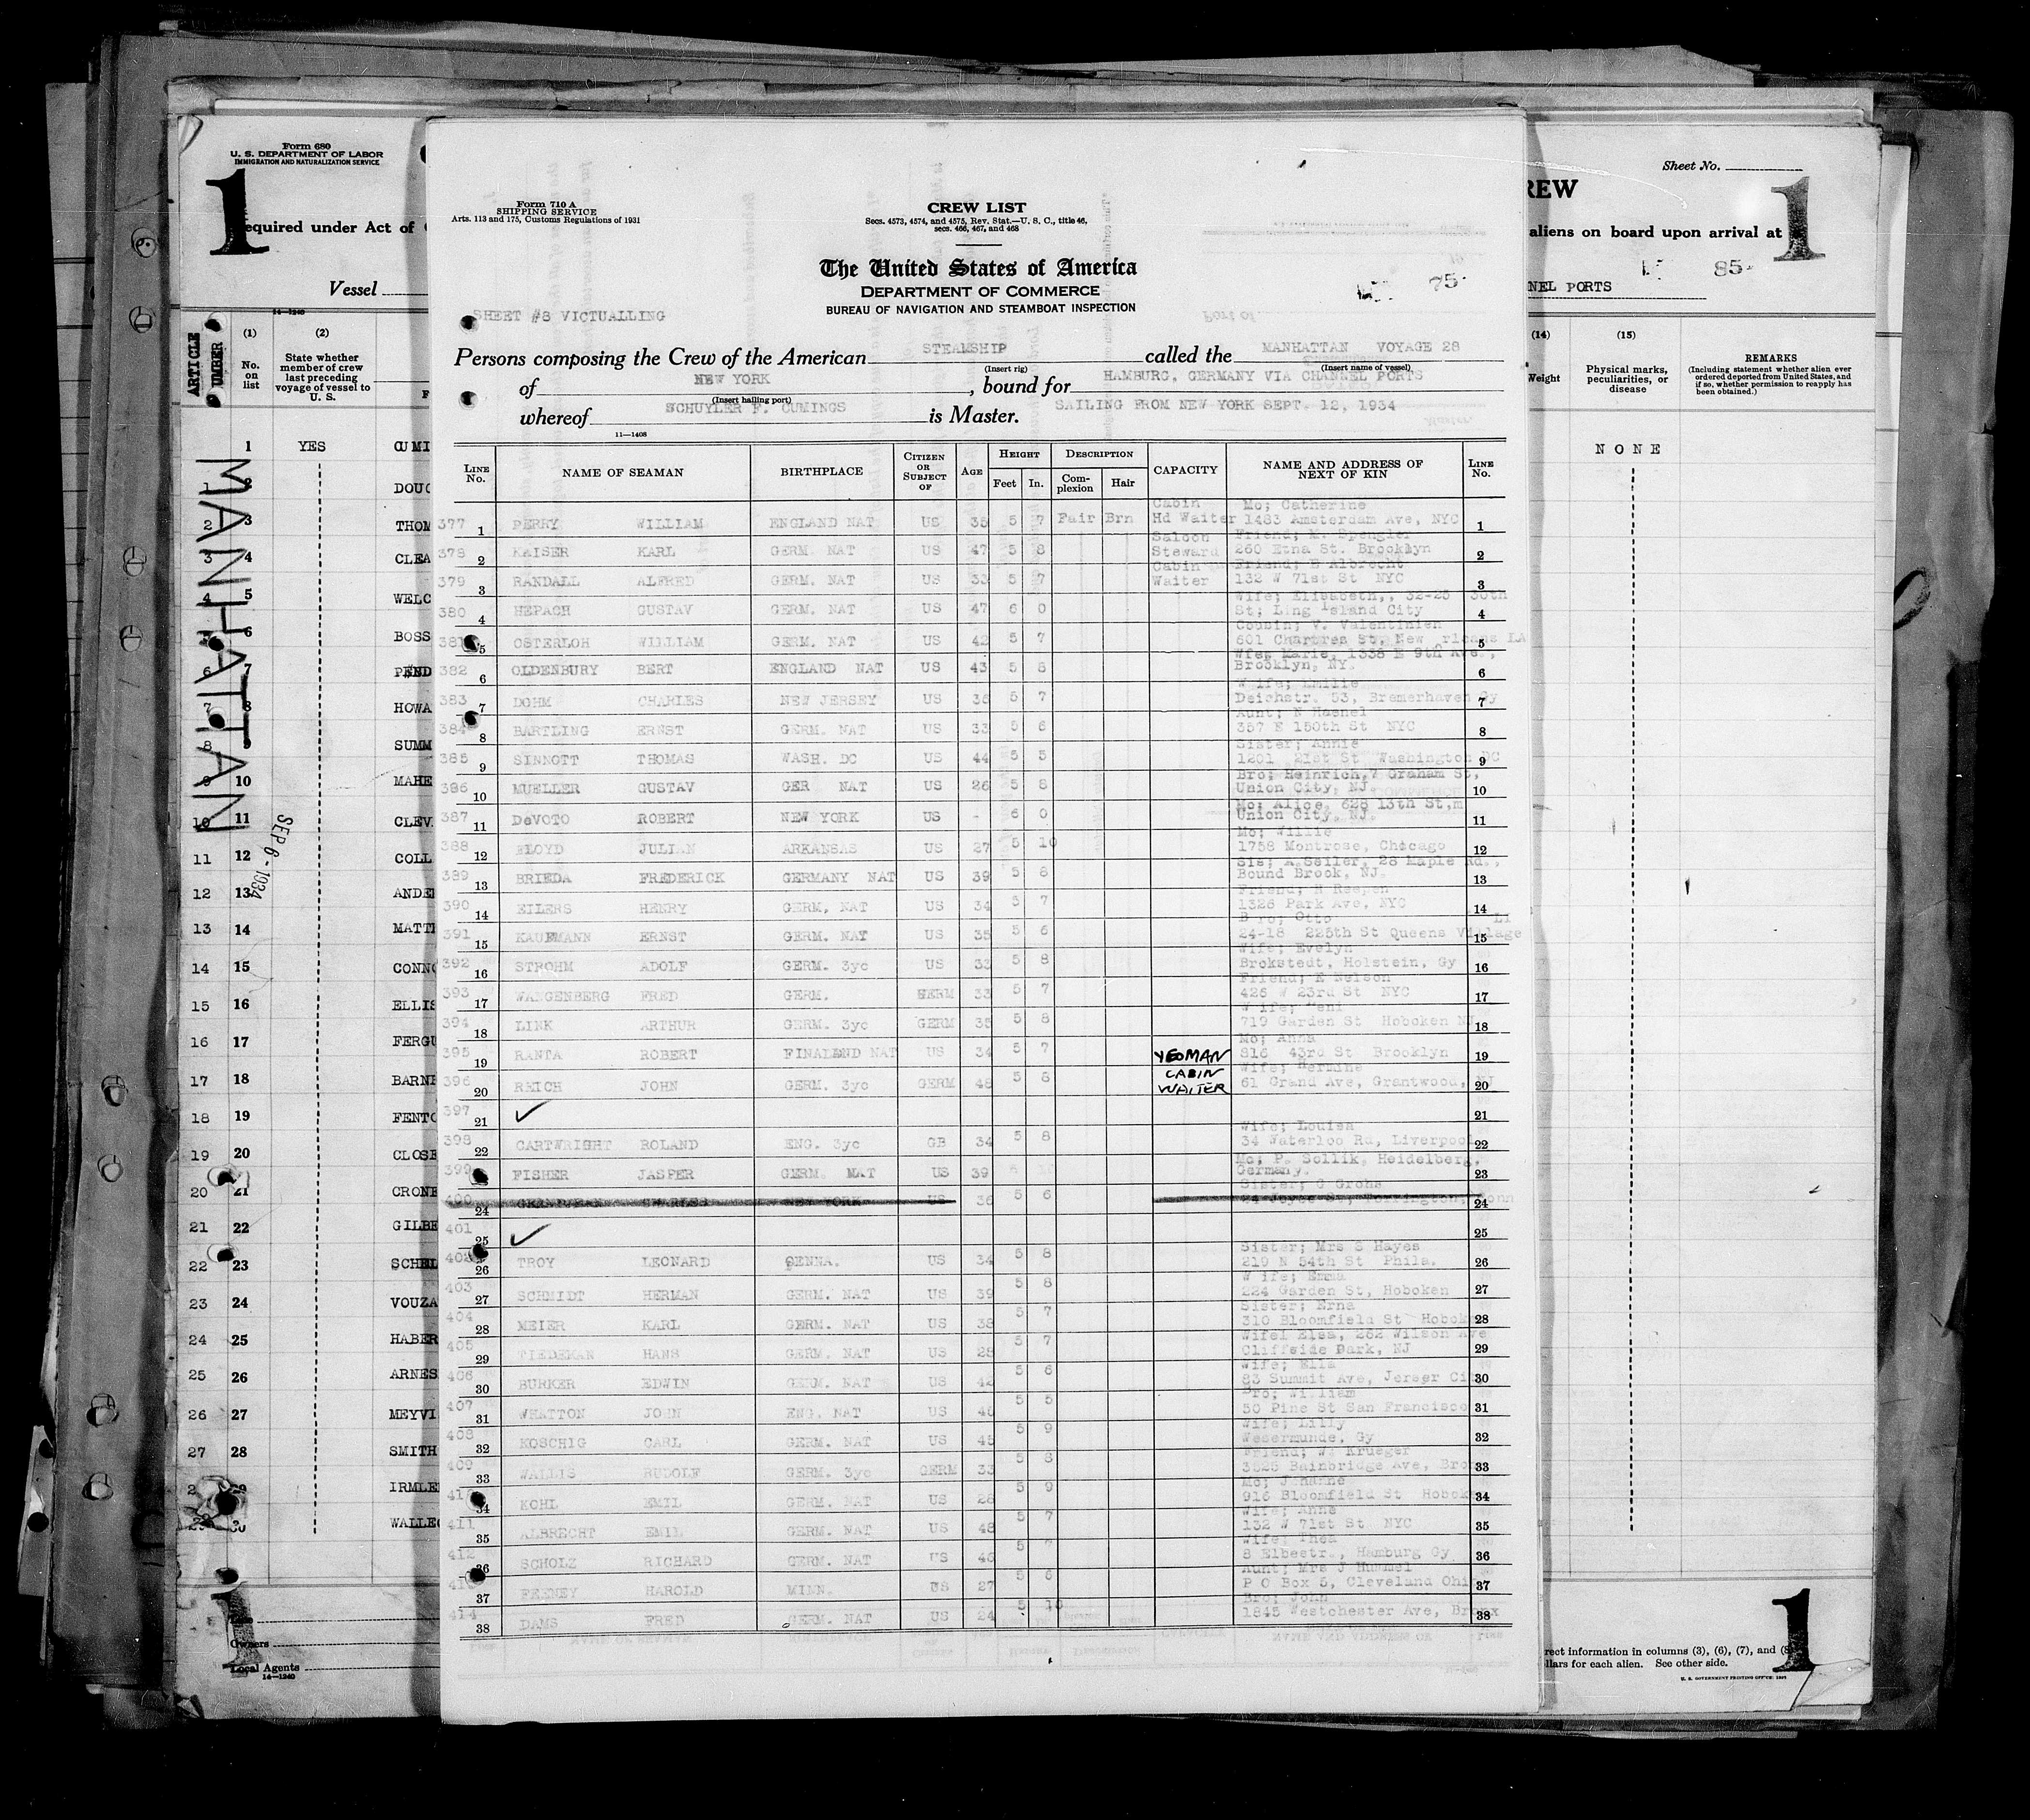 Form 680
U. S. DEPARTMENT OF LABOR
IMMIGRATION AND NATURALIZATION SERVICE
1
equired under Act of
Vessel
14—1240
ARTICLE
UMBER
(1)
No. on list
(2)
State whether member of crew last preceding voyage of vessel to U. S.
1 YES CUMI
DOUG
2 3 THOM
3 4 CLEA
4 5 WELC
6 BOSS
6 7 PEND
7 8 HOWA
8 SUMM
9 10 MAHE
10 11 CLEV
11 12 COLL
12 13 ANDE
13 14 MATT
14 15 CONN
15 16 ELLIS
16 17 FERGU
17 18 BARN
18 19 FENTO
19 20 CLOSE
20 21 CRONE
21 22 GILBE
22 23 SCHEL
23 24 VOUZA
24 25 HABER
25 26 ARNES
26 27 MEYVI
27 28 SMITH
IRMLE
WALLE
MANHATTAN
SEP 6 - 1934
Owners
Local Agents
14—1240
Form 710 A
SHIPPING SERVICE
Arts. 113 and 175, Customs Regulations of 1931
CREW LIST
Secs. 4573, 4574, and 4575, Rev. Stat.—U. S. C., title 46,
secs. 466, 467, and 468
The United States of America
DEPARTMENT OF COMMERCE
BUREAU OF NAVIGATION AND STEAMBOAT INSPECTION
75
SHEET #8 VICTUALLING
Persons composing the Crew of the American STEAMSHIP called the MANHATTAN VOYAGE 28
(Insert rig) (Insert name of vessel)
of NEW YORK , bound for HAMBURG, GERMANY VIA CHANNEL PORTS
(Insert hailing port)
whereof SCHUYLER F. CUMINGS is Master. SAILING FROM NEW YORK SEPT. 12, 1934
11—1408
LINE No. NAME OF SEAMAN BIRTHPLACE CITIZEN OR SUBJECT OF AGE HEIGHT Feet In. DESCRIPTION Complexion Hair CAPACITY NAME AND ADDRESS OF NEXT OF KIN LINE No.
Cabin Mo; Catherine
377 1 PERRY WILLIAM ENGLAND NAT US 35 5 7 Fair Brn Hd Waiter 1483 Amsterdam Ave, NYC 1
Saloon Friend; M. Spengler
378 2 KAISER KARL GERM. NAT US 47 5 8 Steward 260 Etna St. Brooklyn 2
Cabin Friend; E Albrecht
379 3 RANDALL ALFRED GERM. NAT US 33 5 7 Waiter 132 W 71st St NYC 3
Wife; Elisabeth,, 32-25 30th
380 4 HEPACH GUSTAV GERM. NAT US 47 6 0 St; Ling Island City 4
Cousin; V. Valentinien
381 5 OSTERLOH WILLIAM GERM. NAT US 42 5 7 601 Chartres St, New rleans LA 5
Wfe; Marie, 1338 E 9th Ave.,
382 6 OLDENBURY BERT ENGLAND NAT US 43 5 8 Brooklyn, NY. 6
Wife; Emilie
383 7 DOHM CHARLES NEW JERSEY US 36 5 7 Deichstr. 53, Bremerhaven Gy 7
Aunt; N Hasnel
384 8 BARTLING ERNST GERM. NAT US 33 5 6 357 E 150th St NYC 8
Sister; Annie
385 9 SINNOTT THOMAS WASH. DC US 44 5 5 1201 21st St Washington DC 9
Bro; Heinrich, 7 Graham St,
386 10 MUELLER GUSTAV GER NAT US 26 5 8 Union City, NJ. 10
Mo; Alice, 628 13th St,m
387 11 DeVOTO ROBERT NEW YORK US - 6 0 Union City, NJ. 11
Mo; Willie
388 12 FLOYD JULIAN ARKANSAS US 27 5 10 1758 Montrose, Chocago 12
Sis; A.Seiler, 28 Maple Rd.,
389 13 BRIEDA FREDERICK GERMANY NAT US 39 5 8 Bound Brook, NJ. 13
Friend; H Reepen
390 14 EILERS HENRY GERM, NAT US 34 5 7 1326 Park Ave, NYC 14
B ro; Otto LI
391 15 KAUFMANN ERNST GERM. NAT US 35 5 6 24-18 225th St Queens Village 15
Wife; Evelyn
392 16 STROHM ADOLF GERM. 3yc US 33 5 8 Brokstedt, Holstein, Gy 16
Friend; E Nelson
393 17 WANGENBERG FRED GERM. GERM 33 5 7 426 W 23rd St NYC 17
W ife;
394 18 LINK ARTHUR GERM. 3yc GERM 35 5 8 719 Garden St Hoboken NJ 18
Mo; Anna
395 19 RANTA ROBERT FINALAND NAT US 34 5 7 YEOMAN 816 43rd St Brooklyn 19
Wife; Hermine
396 20 REICH JOHN GERM. 3yc GERM 48 5 8 CABIN WAITER 61 Grand Ave, Grantwood, NJ 20
397 21 ✓ 21
Wife; Louisa
398 22 CARTWRIGHT ROLAND ENG. 3yc GB 34 5 8 34 Waterloo Rd, Liverpool 22
Mo; P. Sollik, Heidelberg,
399 FISHER JASPER GERM. NAT US 39 5 Germany. 23
Sister; C Grohs
400 24 CHARLES NEW YORK US 36 5 6 24
401 25 ✓ 25
Sister; Mrs S Hayes
402 26 TROY LEONARD PENNA. US 34 5 8 219 N 54th St Phila. 26
W ife; Emma
403 27 SCHMIDT HERMAN GERM. NAT US 39 5 8 224 Garden St, Hoboken 27
Sister; Erna
404 28 MEIER KARL GERM. NAT US 38 5 7 310 Bloomfield St Hobok 28
Wifel Elsa, 262 Wilson Ave
405 29 TIEDEMAN HANS GERM. NAT US 28 5 7 Cliffside Park, NJ 29
Wife; Ella
406 30 BURKER EDWIN GERM. NAT US 42 5 6 83 Summit Ave, Jerser Ci 30
Bro; William
407 31 WHATTON JOHN ENG. NAT US 5 5 50 Pine St San Francisco 31
Wife; Lilly
408 32 KOSCHIG CARL GERM. NAT US 45 5 9 Wesermunde, Gy 32
Friend; W. Krueger
409 33 WALLIS RUDOLF GERM. 3yc GERM 33 5 8 Bainbridge Ave, Bro 33
Mo; Johanne
410 34 KOHL EMIL GERM. NAT US 28 5 9 916 Bloomfield St Hobok 34
Wife; Anne
411 35 ALBRECHT EMIL GERM. NAT US 48 5 7 132 W 71st St NYC 35
Wife; Thea
412 36 SCHOLZ RICHARD GERM. NAT US 46 5 8 Elbestr., Hamburg Gy 36
Aunt; Mrs J Hummel
37 FEENEY HAROLD MINN. US 27 5 6 P O Box 5, Cleveland Ohi 37
Bro; John
414 38 DAMS FRED GERM. NAT US 24 5 10 1845 Westchester Ave, Bronx 38
Sheet No.
REW
1
aliens on board upon arrival at
85
NEL PORTS
(14)
Weight
(15)
Physical marks, peculiarities, or disease
REMARKS
(Including statement whether alien ever ordered deported from United States, and if so, whether permission to reapply has been obtained.)
NONE
rrect information in columns (3), (6), (7), and (8
llars for each alien. See other side.
U. S. GOVERNMENT PRINTING OFFICE
1